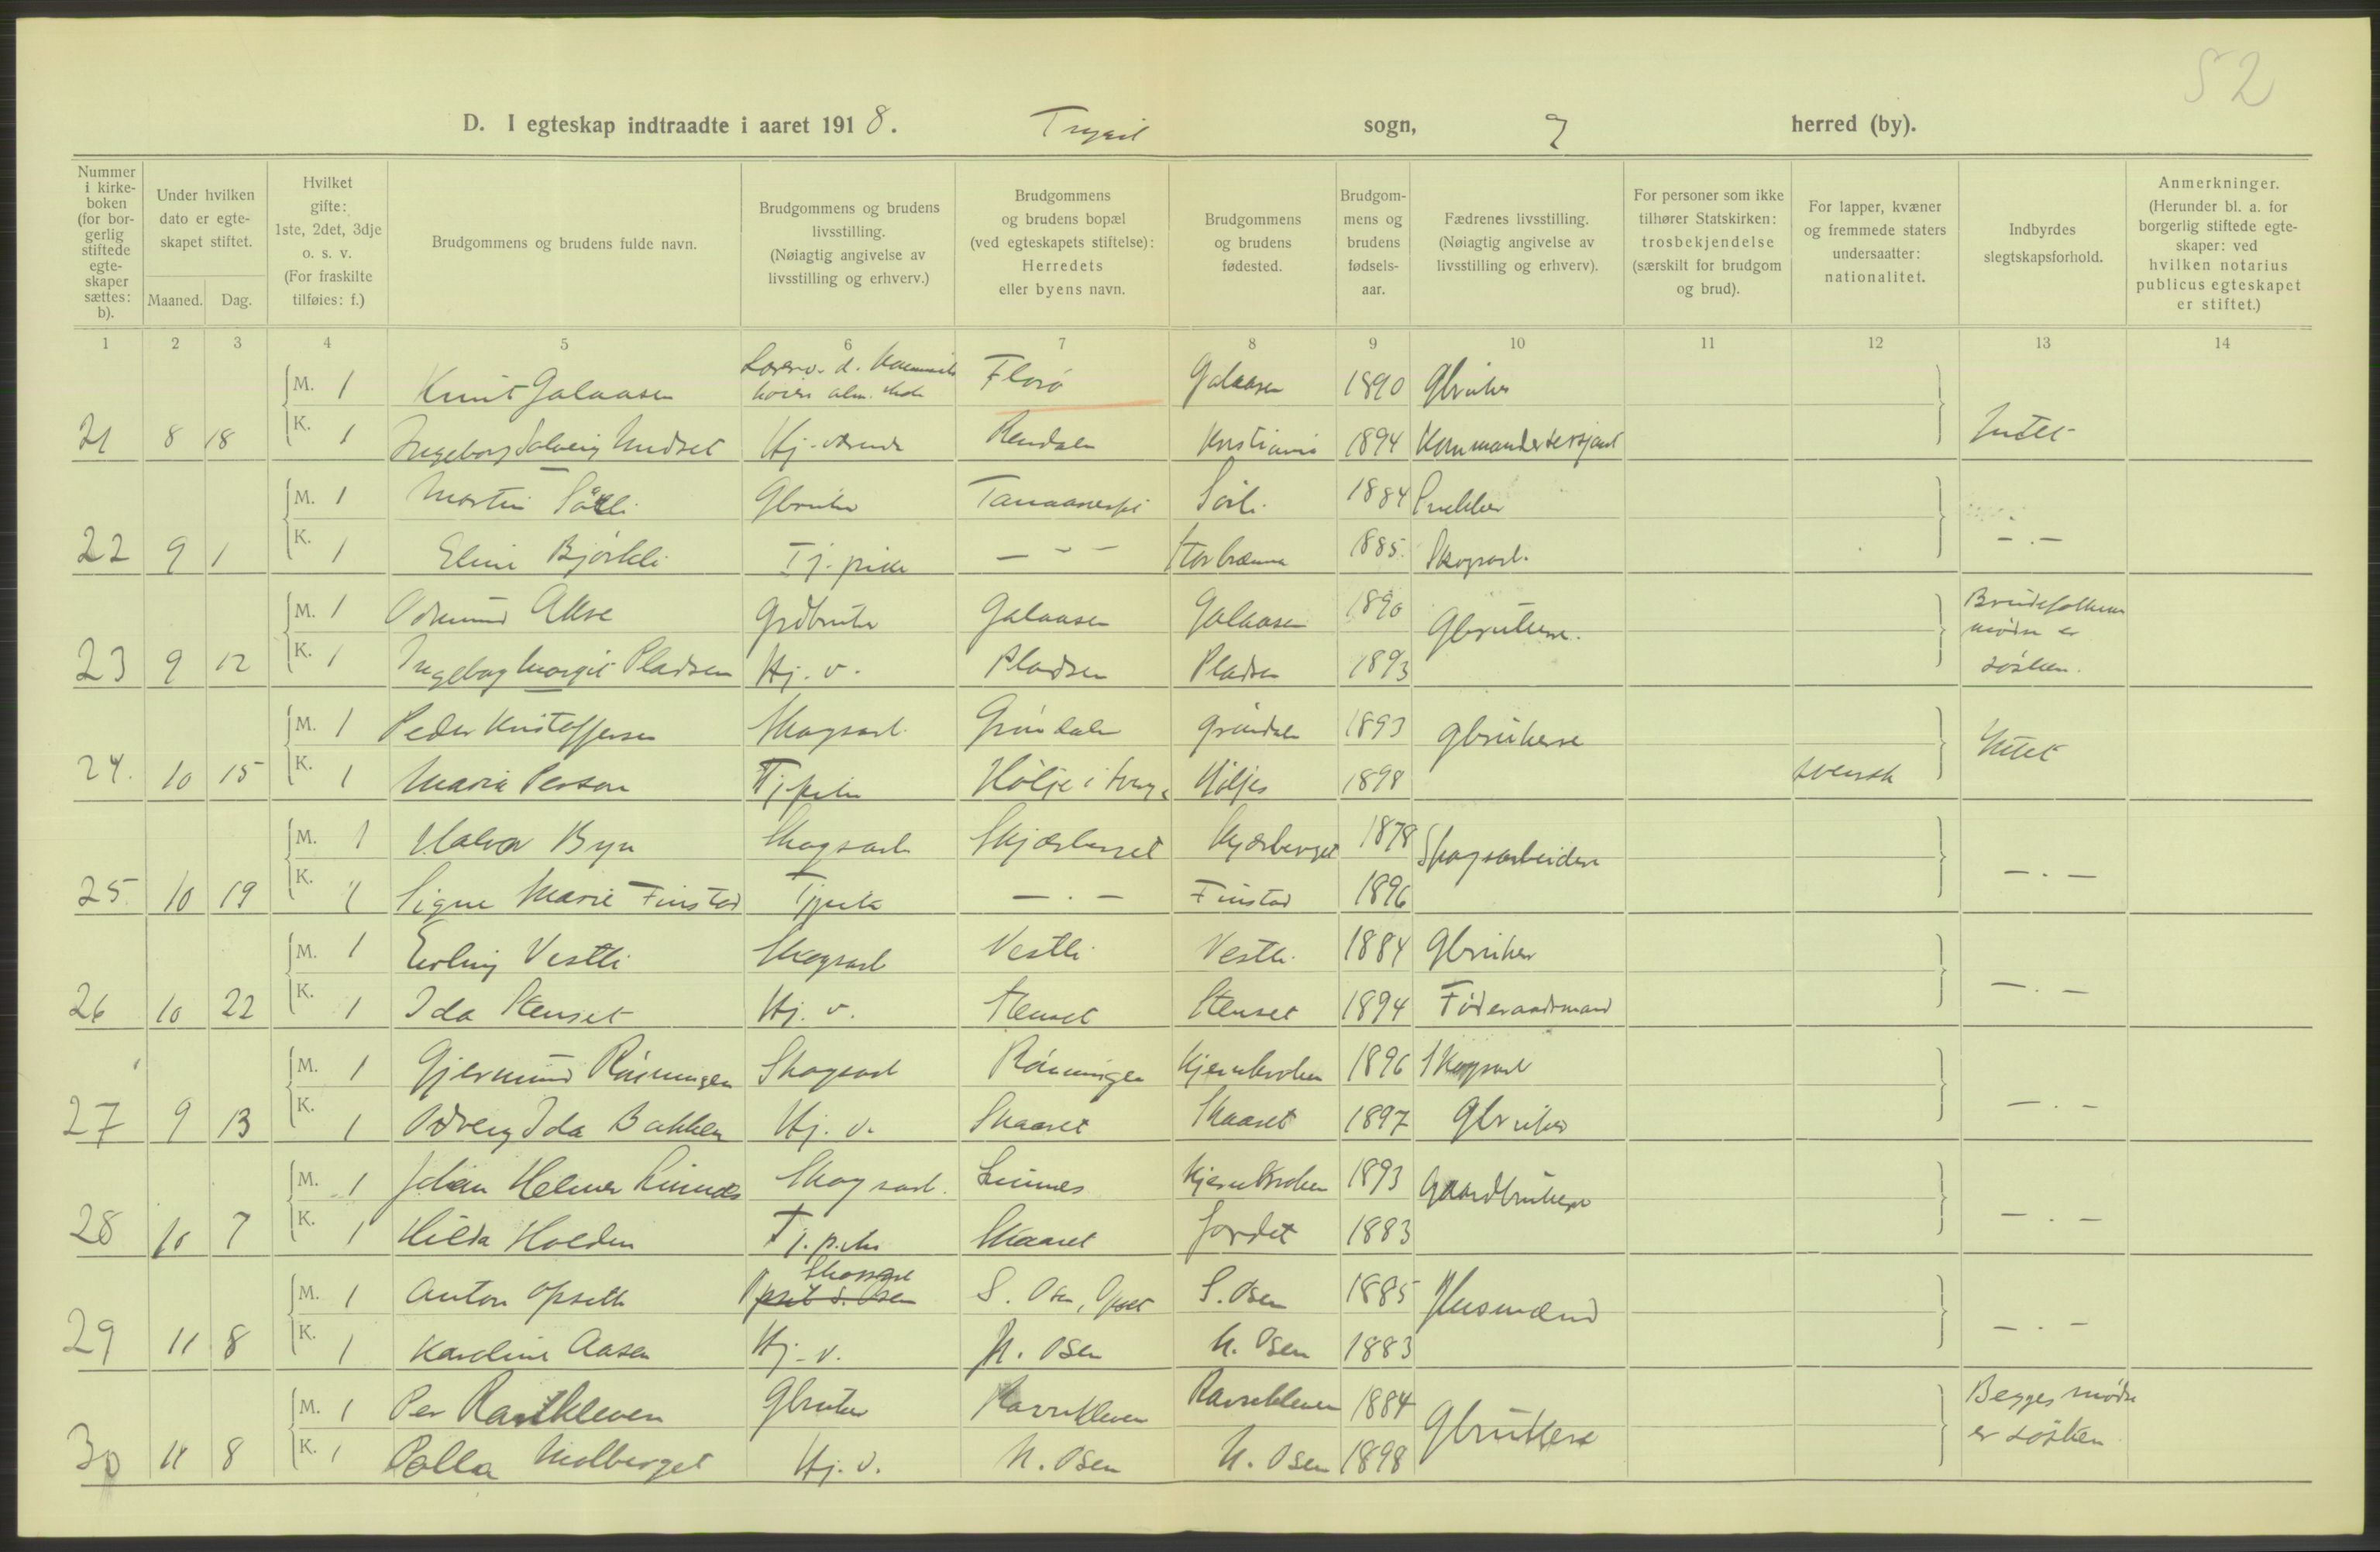 52
D. I egteskap indtraadte i aaret 1918. Trysil sogn, herred (by).
Nummer i kirkeboken (for borgerlig stiftede egteskaper sættes: b).
Under hvilken dato er egteskapet stiftet.
Maaned. Dag.
Hvilket gifte: 1ste, 2det, 3dje o. s. v. (For fraskilte tilføies: f.)
Brudgommens og brudens fulde navn.
Brudgommens og brudens livsstilling. (Nøiagtig angivelse av livsstilling og erhverv.)
Brudgommens og brudens bopæl (ved egteskapets stiftelse): Herredets eller byens navn.
Brudgommens og brudens fødested.
Brudgommens og brudens fødselsaar.
Fædrenes livsstilling. (Nøiagtig angivelse av livsstilling og erhverv).
For personer som ikke tilhører Statskirken: trosbekjendelse (særskilt for brudgom og brud).
For lapper, kvæner og fremmede staters undersaatter: nationalitet.
Indbyrdes slegtskapsforhold.
Anmerkninger. (Herunder bl. a. for borgerlig stiftede egteskaper: ved hvilken notarius publicus egteskapet er stiftet.)
1 2 3 4 5 6 7 8 9 10 11 12 13 14
M. 1 Knut Galaasen Florø Galaasen 1890 Gbruker
21 8 18 K. 1 Ingeborg Solveig Hj. værende Rendalen Kristiania 1894 Kommandersersjant Intet
M. 1 Martin Gbruker Tanaaneset 1884 Snekker
22 9 1 K. 1 Eline Bjørkli Tj. pike — - — 1885. Skogsarb. — . —
M. 1 Odmund Akre Grdbruker Galaasen Galaasen 1890 Gbrukere. Brudefolkenes mødre er søsken.
23 9 12 K. 1 Ingeborg Margit Pladsen Hj. v. Pladsen Pladsen 1893
M. 1 Peder Kristoffersen Skogsarb. Grøndalen Grøndalen 1893 Gbrukere
24. 10 15 K. 1 Maria Persson Tj pike Höljes 1898 svensk Intet
M. 1 Halvor Byn Skogsarb Skjærberget Skjærberget 1878 Skogsarbeidere
25. 10 19 K. 1 Signe Marie Finstad Tjpike — . — Finstad 1896 — . —
M. 1 Erling Vestli Skogsarb Vestli Vestli 1884 Gbruker
26 10 22 K. 1 Ida Stenset Hj. v. Stenset Stenset 1894 Føderaadsmand — . —
M. 1 Gjermund Rønningen Skogsarb Rønningen Kjernbroken 1896 Skogsarb
27 9 13 K. 1 Ida Bakken Hj. v. Skaaret Skaaret 1897 Gbruker — . —
M. 1 Johan Helmer Linnes Skogsarb. Linnes Kjernbroken 1893 Gaardbrukere
28 10 7 K. 1 Hilda Holden Tj. pike Skaaret Jordet 1883 — . —
M. 1 Anton Opseth Skogsarb S. Osen, Opset S. Osen 1885 Husmænd
29 11 8 K. 1 Karoline Aasen Hj. v. N. Osen N. Osen 1883 — . —
M. 1 Per Gbruker 1884 Gbrukere Begges mødre er søsken
30 11 8 K. 1 Palla Hj. v. N. Osen N. Osen 1898